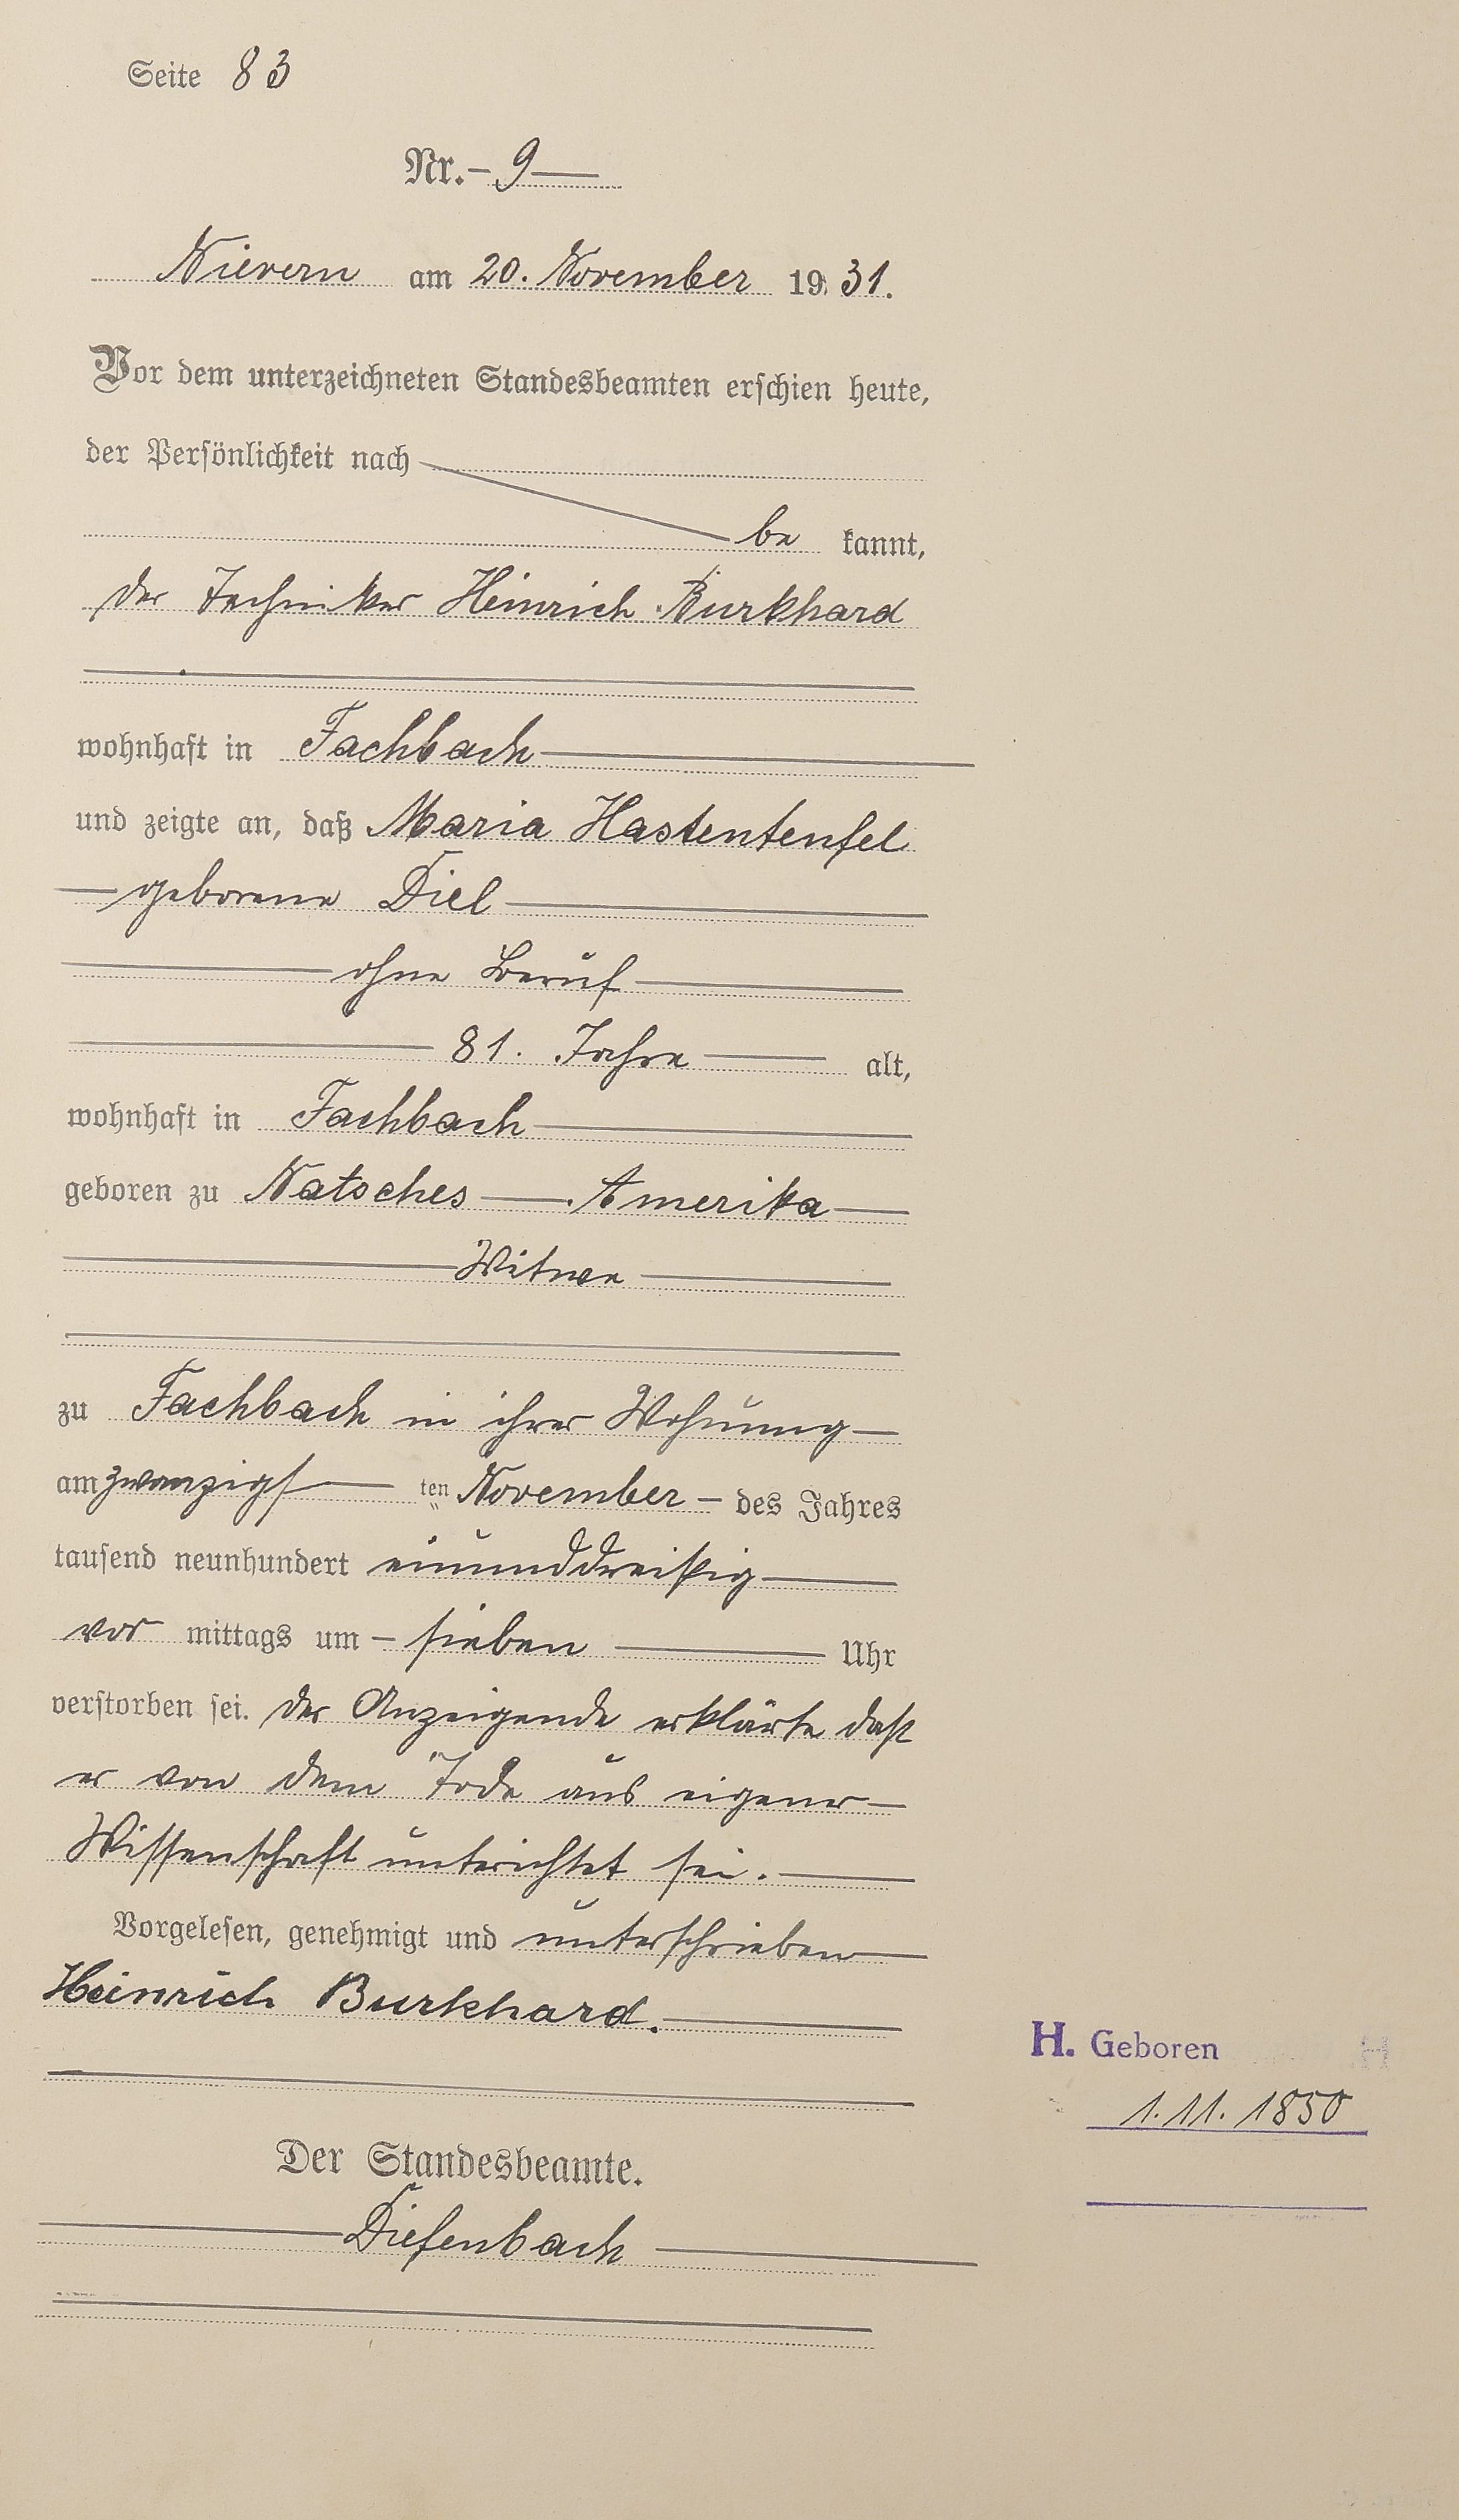 Seite 83
Nr. 9
Nievern am 20. November 1931.
Vor dem unterzeichneten Standesbeamten erschien heute,
der Persönlichkeit nach
be kannt,
der Techniker Heinrich Burkhard
wohnhaft in Fachbach
und zeigte an, daß Maria Hastenteufel
geborene Diel
ohne Beruf
81. Jahre alt,
wohnhaft in Fachbach
geboren zu Natsches Amerika
Witwe
zu Fachbach in ihrer Wohnung
am zwanzigsten November des Jahres
tausend neunhundert einunddreißig
vor mittags um sieben Uhr
verstorben sei. Der Anzeigende erklärte daß
er von dem Tode aus eigener
Wissenschaft unterichtet sei.
Vorgelesen, genehmigt und unterschrieben
Heinrich Burkhard.
H. Geboren
1.11.1850
Der Standesbeamte.
Diefenbach